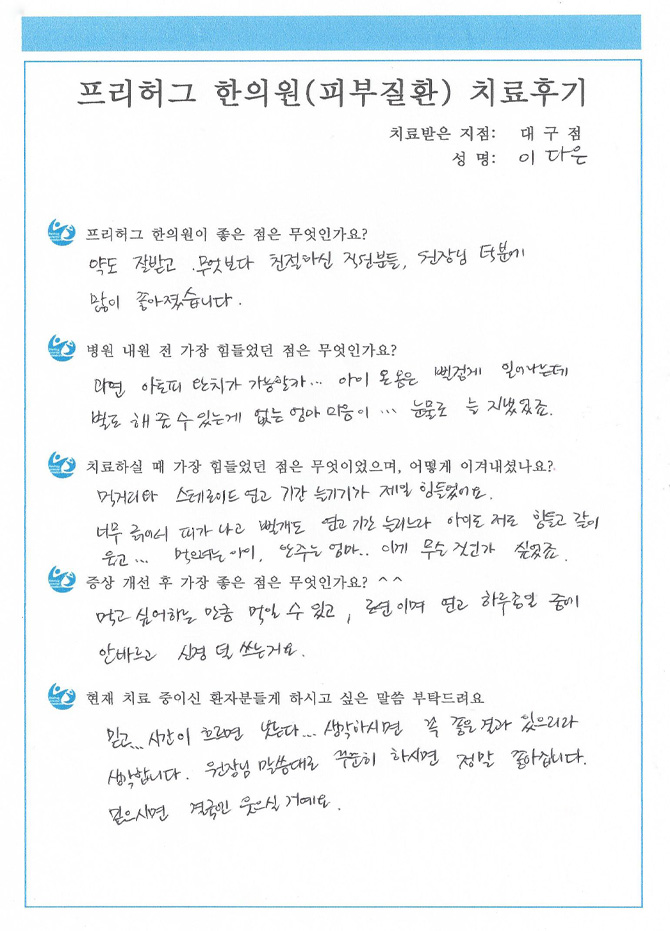 프리허그 한의원(피부질환) 치료후기
치료받은 지점: 대구점
성 명: 이 다은
프리허그 한의원이 좋은 점은 무엇인가요?
약도 잘받고 . 무엇보다 친절하신 직원분들, 원장님 덕분에
많이 좋아졌습니다.
병원 내원 전 가장 힘들었던 점은 무엇인가요?
과연 아토피 완치가 가능할까... 아이 온몸은 뻘겋게 일어나는데
별도 해줄 수 있는게 없는 엄마 마음이 ... 눈물로 늘 지냈었죠.
치료하실 때 가장 힘들었던 점은 무엇이었으며, 어떻게 이겨내셨나요?
먹거리와 스테로이드 연고 기간 늘리기가 제일 힘들었어요.
너무 긁어서 피가 나고 뻘개도 연고 기간 늘리느라 아이도 저도 힘들고 같이
울고... 먹으려는 아이, 안주는 엄마.. 이게 무슨 짓인가 싶었죠.
증상 개선 후 가장 좋은 점은 무엇인가요? ^^
먹고 싶어하는 만큼 먹일 수 있고, 로션이며 연고 하루종일 몸에
안바르고 신경 덜 쓰는거요.
현재 치료 중이신 환자분들게 하시고 싶은 말씀 부탁드려요
믿고... 시간이 흐르면 낫는다... 생각하시면 꼭 좋은 결과 있으리라
생각합니다. 원장님 말씀대로 꾸준히 하시면 정말 좋아집니다.
믿으시면 결국엔 웃으실 거예요.